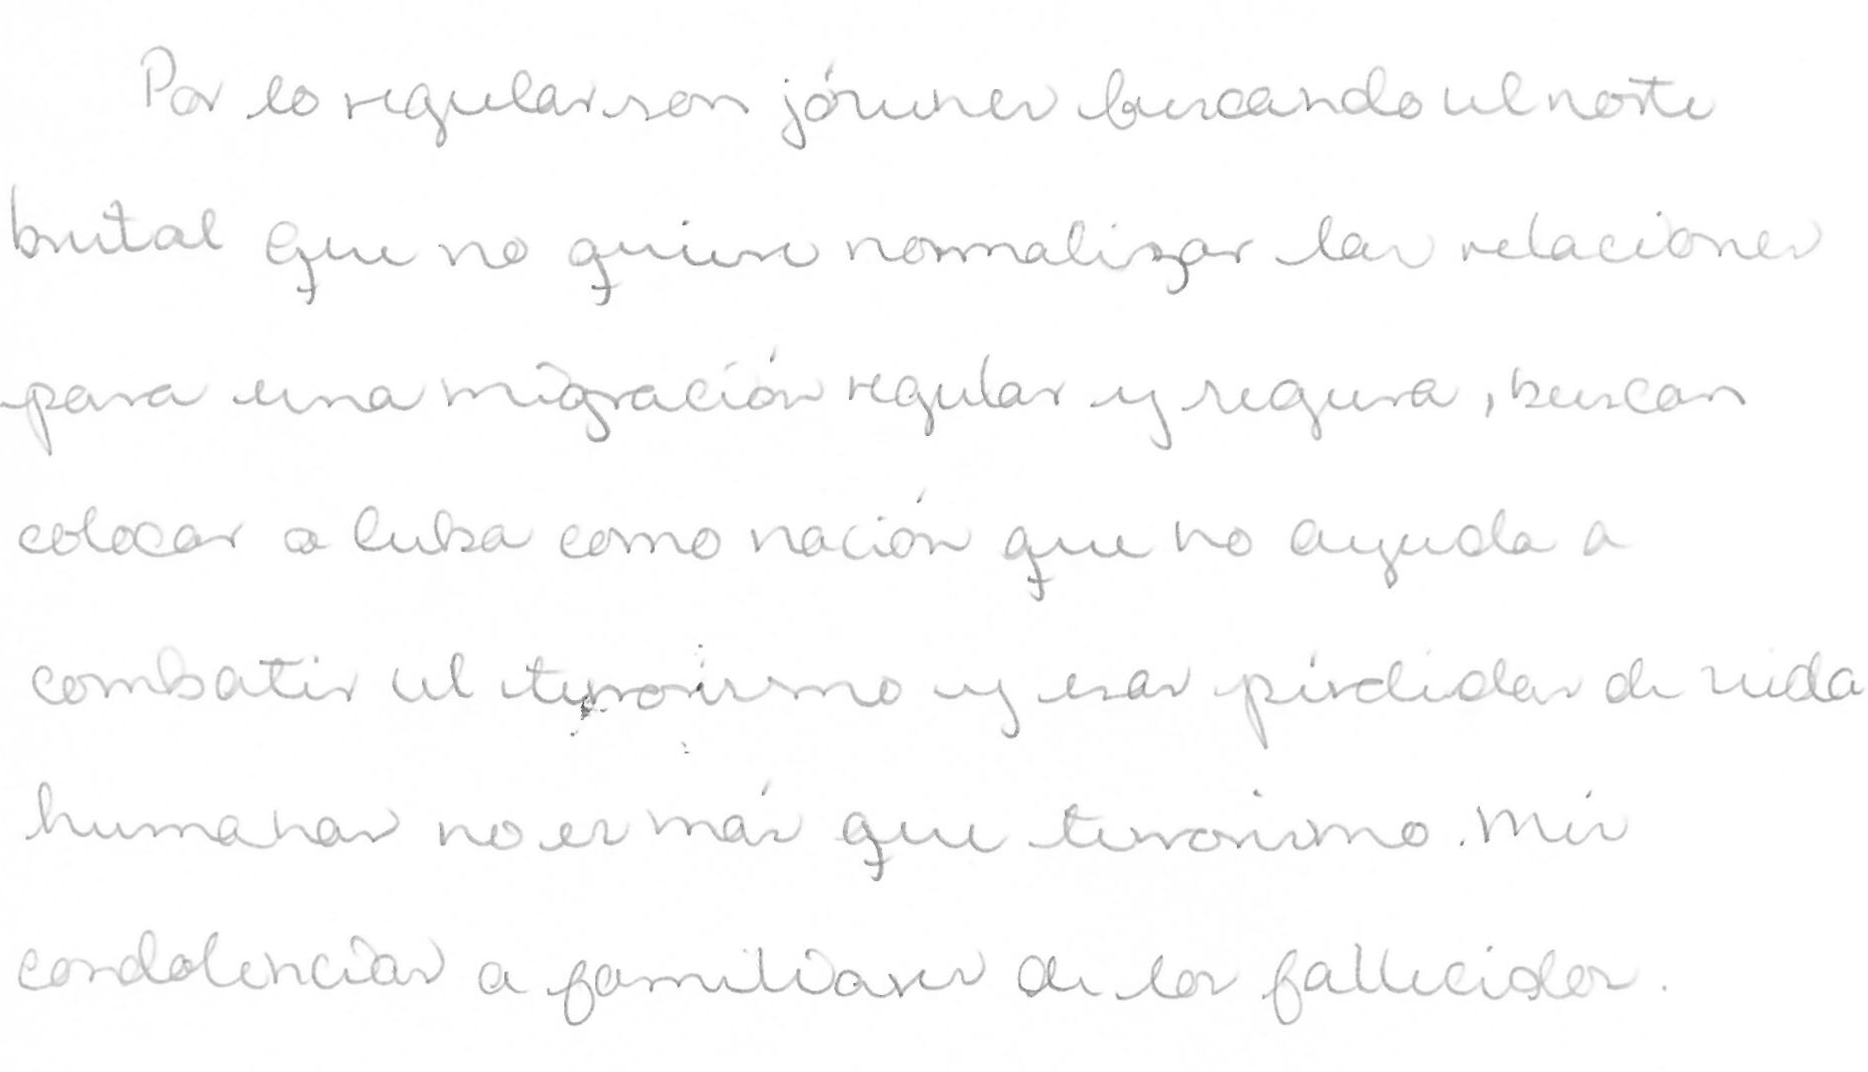 Por lo regular son jóvenes buscando el norte
brutal que no quiere normalizar las relaciones
para una migración regular y segura, buscan
colocar a Cuba como nación que no ayuda a
combatir el terrorismo y esas pérdidas de vida
humanas no es más que terrorismo. Mis
condolencias a familiares de los fallecidos.